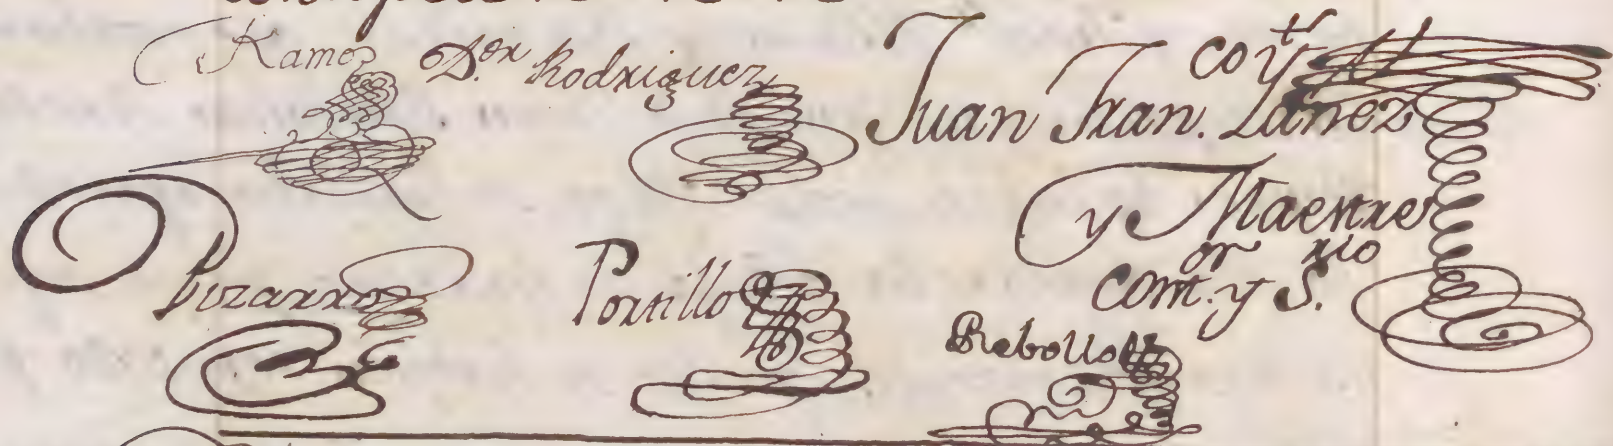 Ramos D.or Rodriguez
Juan Fran.co Yañez
y Maestre
cont.or y S.rio
Pizarro Portillo
Rebollo